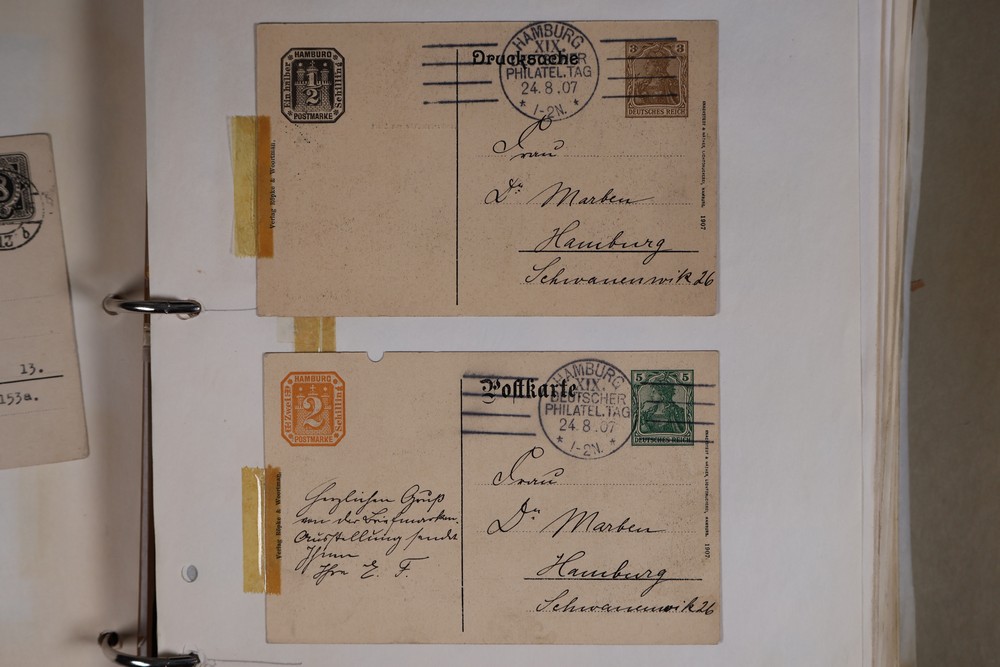 HAMBURG
Ein halber
1/2
Schilling
POSTMARKE
Drucksache
HAMBURG
XIX.
DEUTSCHER
PHILATEL.TAG
24.8.07
* 1-2N. *
3 3
DEUTSCHES REICH
Verlag Röpke & Woortman.
1907
Frau
Dr. Marben
Hamburg
Schwanenwik 26
13.
153a.
HAMBURG
Zwei
2
Schilling
POSTMARKE
Postkarte
HAMBURG
XIX.
DEUTSCHER
PHILATEL.TAG
24.8.07
* 1-2N. *
5 5
DEUTSCHES REICH
Verlag Röpke & Woortman.
1907
Herzlichen Gruß
von der Briefmarken-
Ausstellung sendet
Ihnen
Ihre E. F.
Frau
Dr. Marben
Hamburg
Schwanenwik 26